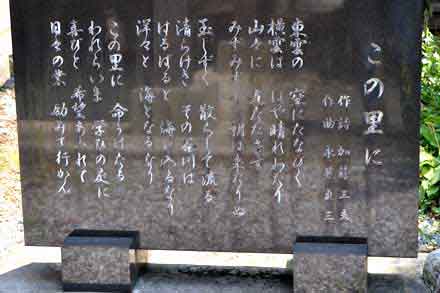 この里に
作詩 加藤三
作曲 三
東雲の 空にたなびく
横雲は はや晴れわたり
山々に
みずみずし 朝は来たりぬ
玉しずく 散らして流る
清らけき その谷川は
はるばると 海に入るなり
洋々と 海となるなり
この里に 命うけたる
われらいま 学びの庭に
喜びと 希望あふれて
日々の業 励みて行かん